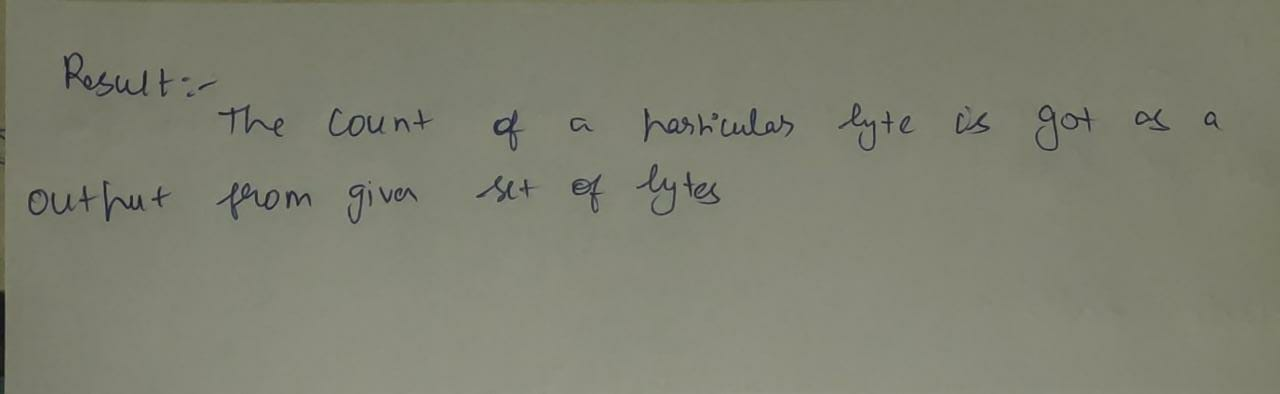 Result:-
The count of a particular byte is got as a
output from given set of bytes